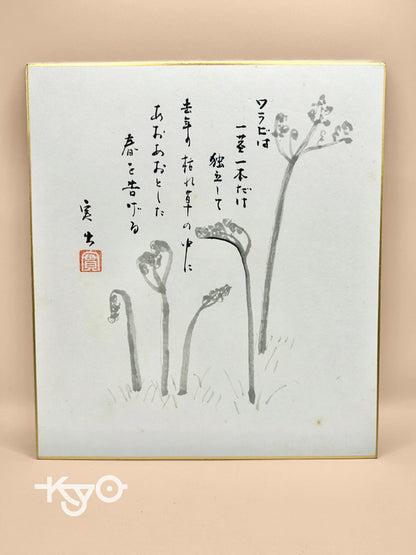 ワラビは
一茎一本だけ
独立して
去年の枯れ草の中に
あおあおとした
春を告げる
実
KYO